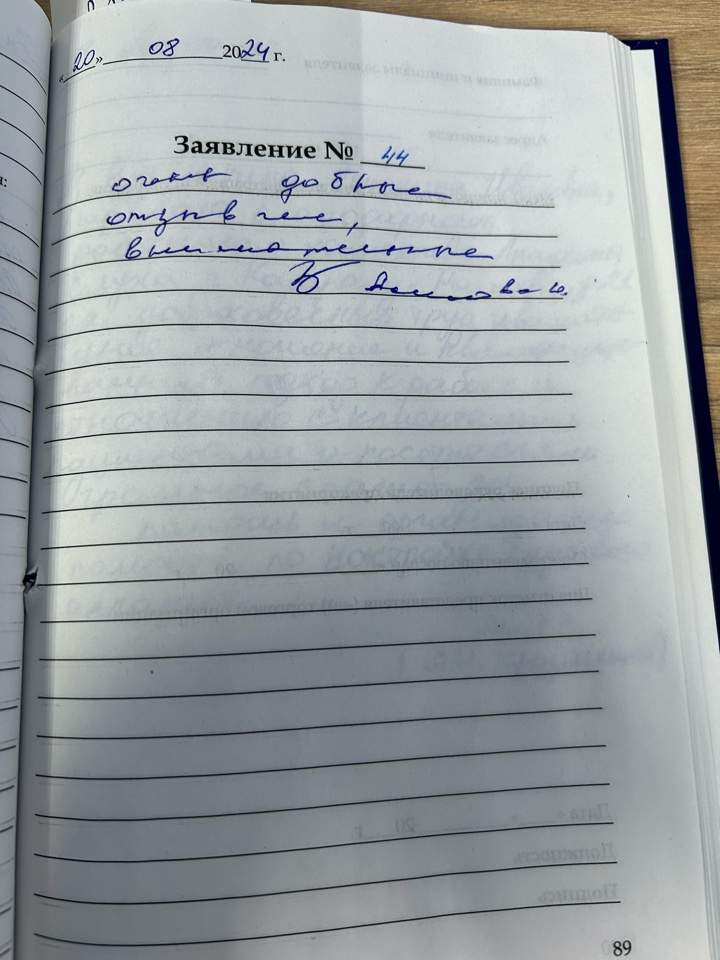 «20» 08 2024 г.
Заявление № 44
очень добрые
отзывчие,
внимательные
89